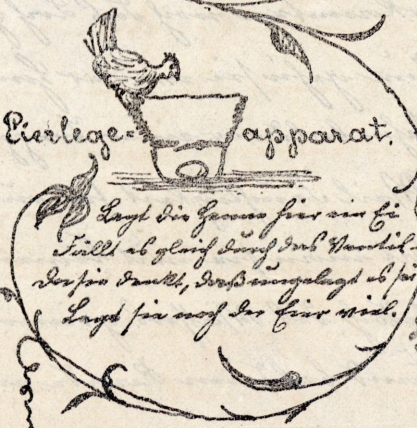 Eierlege-apparat.
Legt die Henne hier ein Ei
Fällt es gleich durch das Ventil
Da sie denkt, daß ungelegt es sei
Legt sie noch der Eier viel.